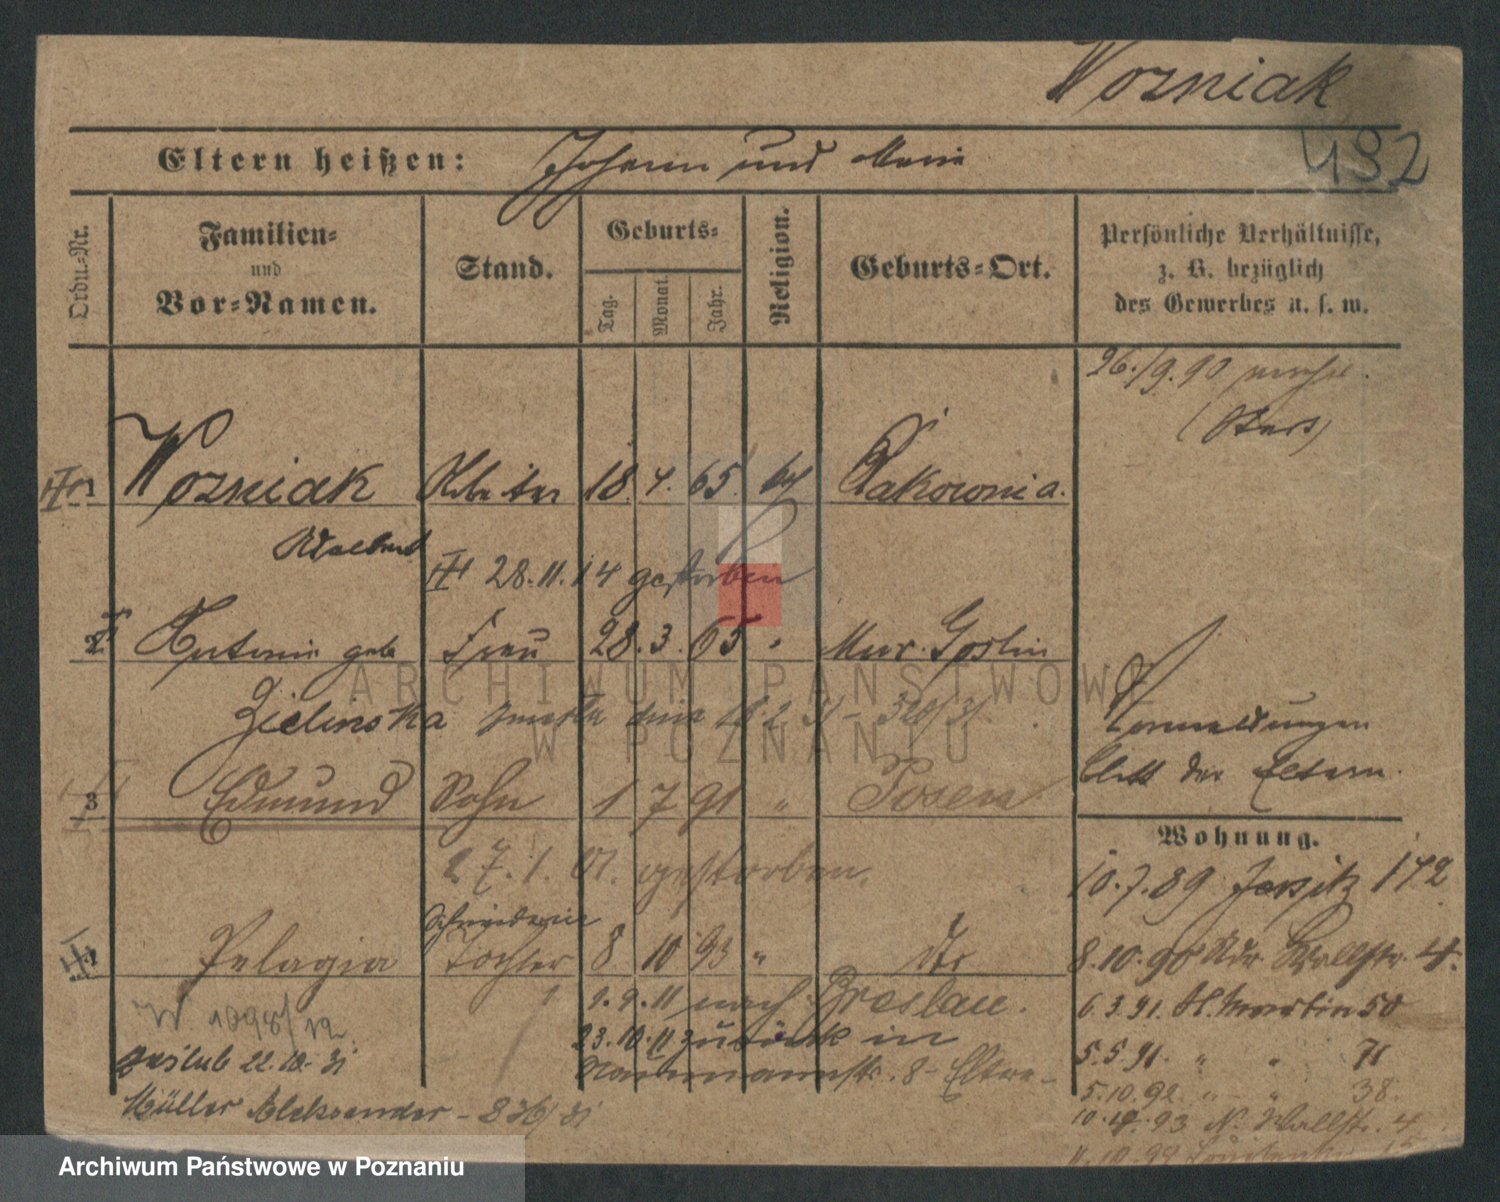 Wozniak
492
Eltern heißen: Johann und Marie
Ordn.-Nr.
Familien-
und
Vor-Namen.
Stand.
Geburts-
Tag.
Monat.
Jahr.
Religion.
Geburts-Ort.
Persönliche Verhältnisse,
z. B. bezüglich
des Gewerbes u. s. w.
26./9.90
Wozniak Arbeiter 18. 4. 65. kath Pakownia.
Adalbert
28.11.14 gestorben
2 Antonie geb Frau 28. 3. 65 " Mur. Goslin
Zielinska zmarła dnia
Vormeldungen
Blatt der Eltern.
3 Edmund Sohn 1 7 91 " Posen
27.1.01. gestorben.
Wohnung.
10.7.89 Jersitz 172
Schneiderin
Pelagia Tochter 8 10 93 " dto
8.10.90 Ndr. Wallstr. 4.
1.9.11 nach Breslau.
6.3.91. St. Martin 50
W 1098/12
23.10.11 zurück in
zaślub 22.10.31
Naumannstr. 8 - Eltern
5.5.91. " " 71
5.10.92. " " 38.
Müller Aleksander - 836/31
10.4.93 N. Wallstr. 4
ARCHIWUM PAŃSTWOWE
W POZNANIU
Archiwum Państwowe w Poznaniu